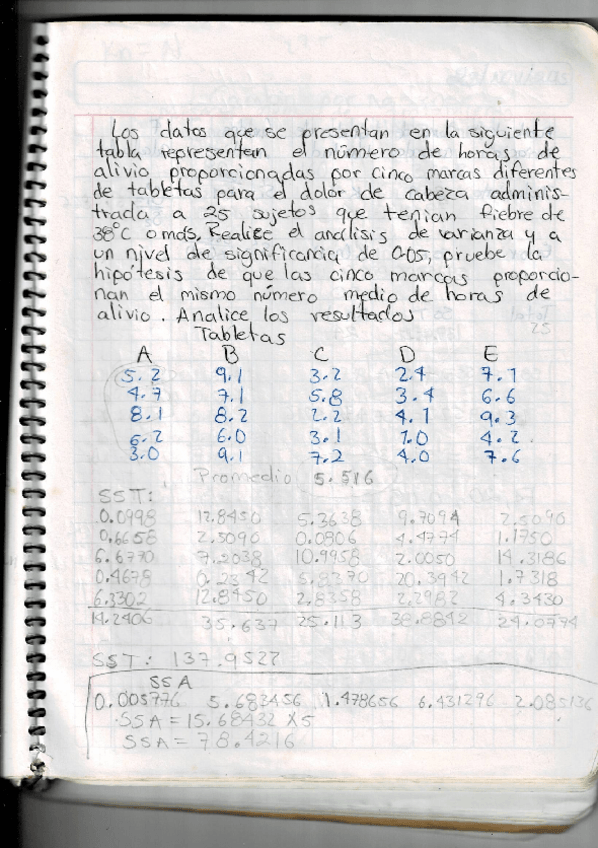 Los datos que se presentan en la siguiente
tabla representan el número de horas de
alivio proporcionadas por cinco marcas diferentes
de tabletas para el dolor de cabeza adminis-
trada a 25 sujetos que tenian fiebre de
38°C o más, Realice el análisis de varianza y a
un nivel de significancia de 0.05, pruebe la
hipótesis de que las cinco marcas proporcio-
nan el mismo número medio de horas de
alivio. Analice los resultados
Tabletas
A B C D E
5.2 9.1 3.2 2.4 7.1
4.7 7.1 5.8 3.4 6.6
8.1 8.2 2.2 4.1 9.3
6.2 6.0 3.1 1.0 4.2
3.0 9.1 7.2 4.0 7.6
Promedio 5.516
SST:
0.0998 12.8450 5.3638 9.7094 2.5090
0.6658 2.5090 0.0806 4.4774 1.1750
6.6770 7.2038 10.9958 2.0050 14.3186
0.4678 0.2342 5.8370 20.3942 1.7318
6.3302 12.8450 2.8358 2.2982 4.3430
14.2406 35.637 25.113 38.8842 24.0774
SST: 137.9522
SSA
0.005776 5.683456 1.478656 6.431296 2.085136
SSA = 15.68432 X 5
SSA = 78.4216